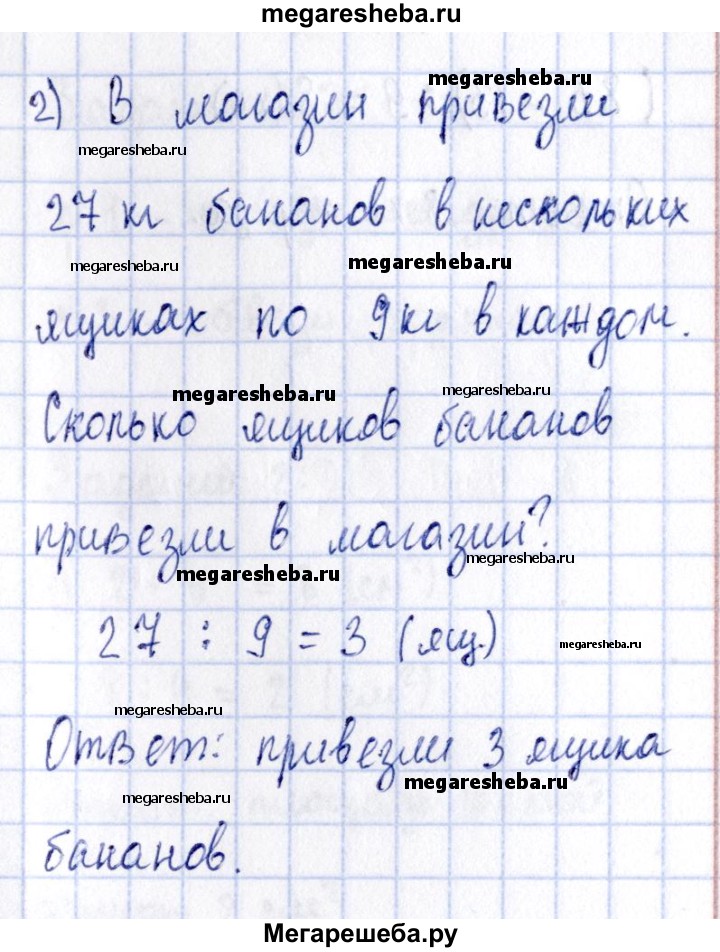 megaresheba.ru
megaresheba.ru
2) В магазин привезли
megaresheba.ru
27 кг бананов в нескольких
megaresheba.ru megaresheba.ru
ящиках по 9 кг в каждом.
megaresheba.ru megaresheba.ru
Сколько ящиков бананов
привезли в магазин?
megaresheba.ru megaresheba.ru
27 : 9 = 3 (ящ.)
megaresheba.ru
megaresheba.ru
Ответ: привезли 3 ящика
megaresheba.ru megaresheba.ru
бананов.
Мегарешеба.ру